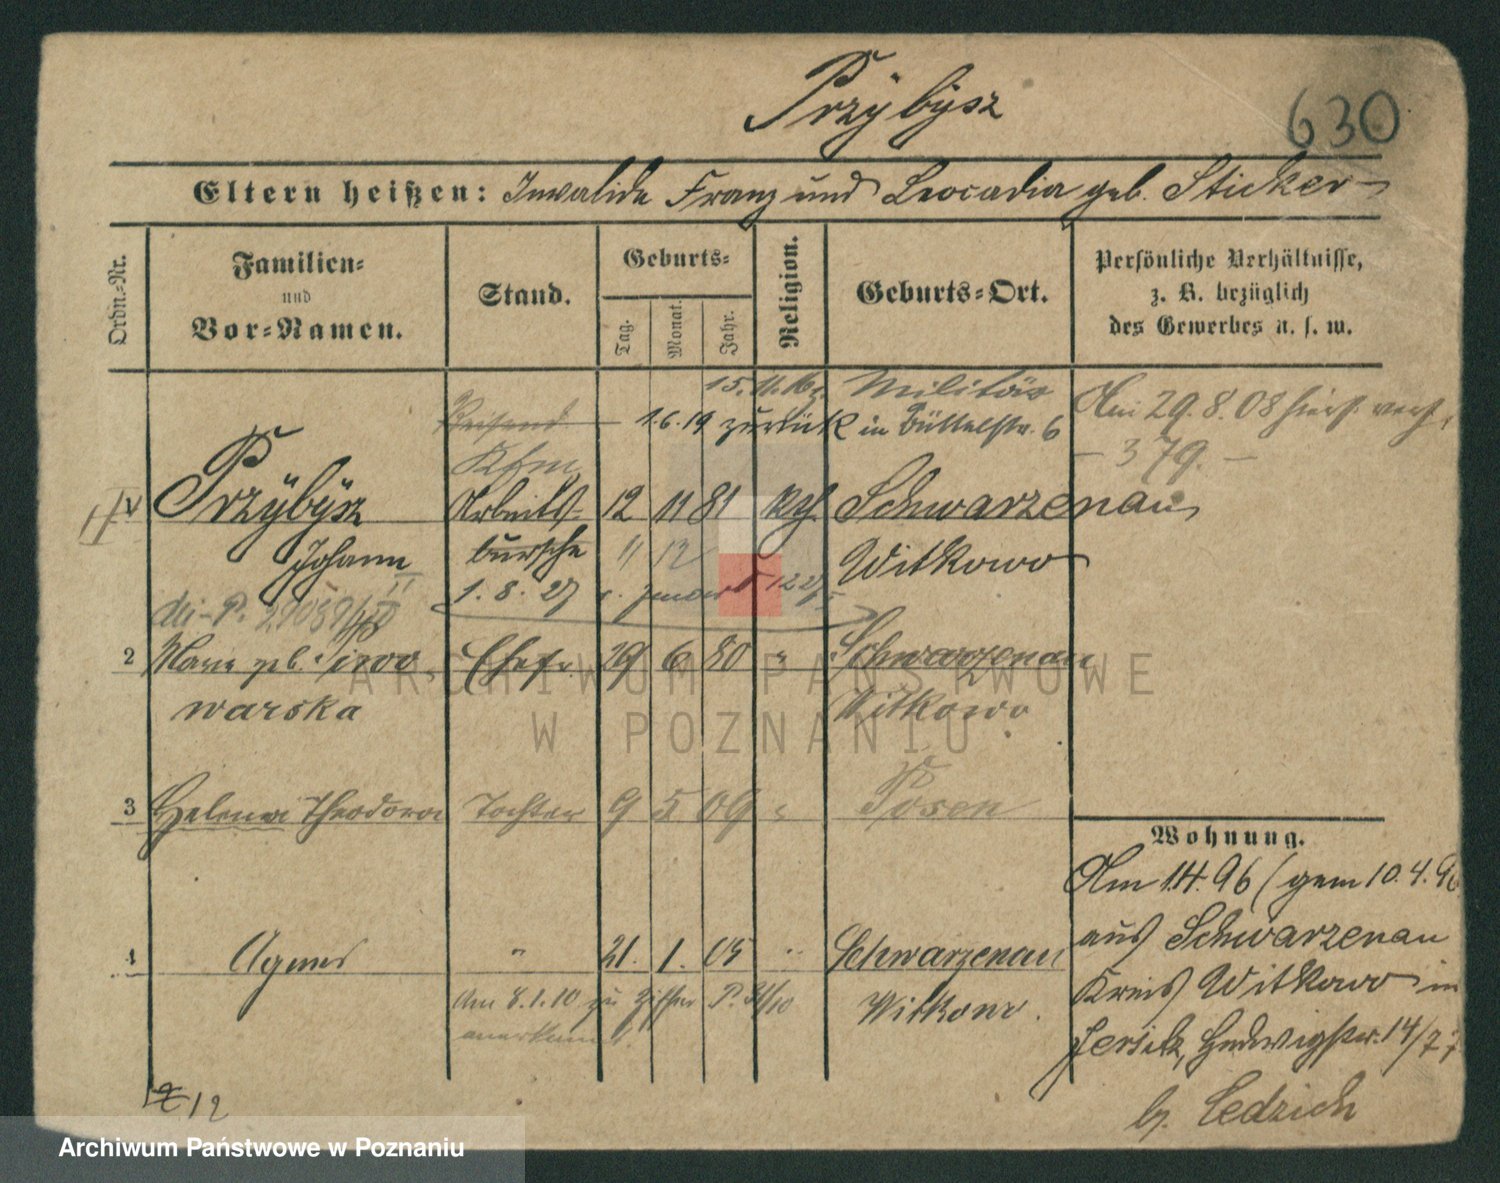 Przÿbÿsz
630
Eltern heißen: Invalide Franz und Leocadia geb. Sticker
Ordn.-Nr.
Familien-
und
Vor-Namen.
Stand.
Geburts-
Tag.
Monat.
Jahr.
Religion.
Geburts-Ort.
Persönliche Verhältnisse,
z. B. bezüglich
des Gewerbes u. s. w.
15. 11. 16 z. Militär
1.6.19 zurück in Büttelstr. 6
Am 29.8.08 hier
- 379. -
Kfm
Przÿbÿsz Arbeits- 12 11 81 kth. Schwarzenau
Johann bursche 11 12 Witkowo
1. 8. 27
2 Marie geb. Iwo Ehefr. 29 6 80 " Schwarzenau
warska Witkowo
3 Helena Theodora Tochter 9 5 09 " Posen
4 Agnes " 21. 1. 05 " Schwarzenau
Witkowo.
Am 8.1.10 zu Ziffer
Wohnung.
Am 1.4.96 (gem 10.4.96
aus Schwarzenau
Kreis Witkowo in
Jersitz, Hedwigstr. 14/77
b. Cedzich
12
ARCHIWUM PAŃSTWOWE
W POZNANIU
Archiwum Państwowe w Poznaniu